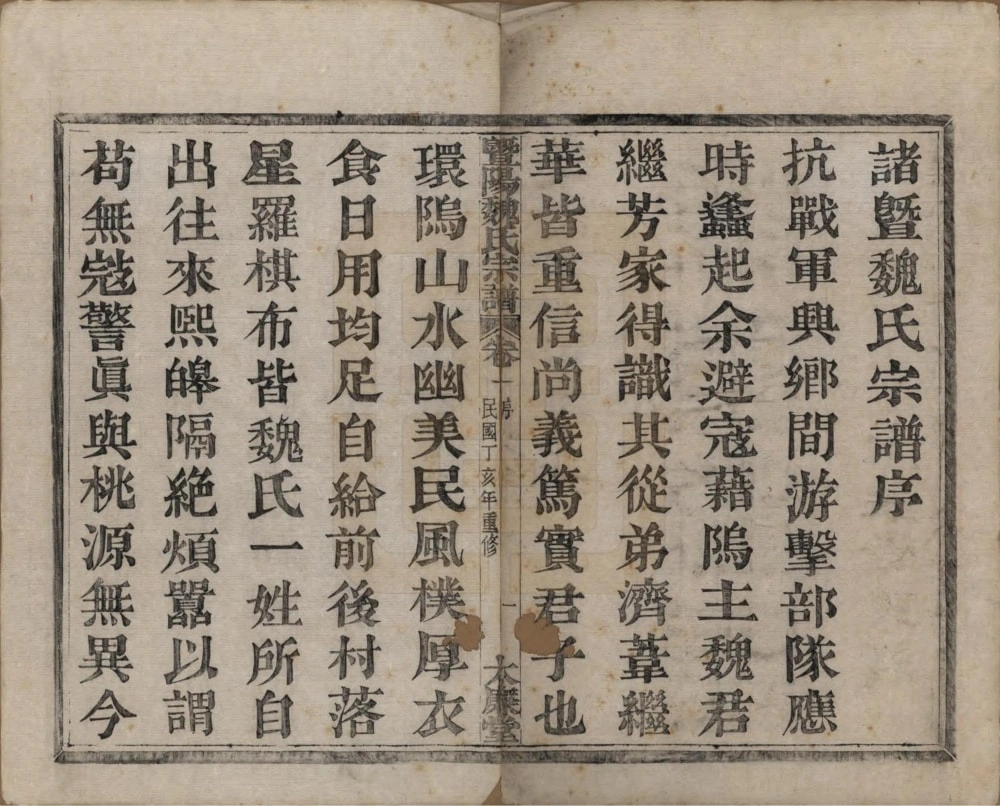 諸暨魏氏宗譜序
抗戰軍興鄉間游擊部隊應
時蠭起余避寇藉隖主魏君
繼芳家得識其從弟濟葦繼
華皆重信尚義篤實君子也
暨陽魏氏宗譜 卷一 序 民國丁亥年重修 一
環隖山水幽美民風樸厚衣
食日用均足自給前後村落
星羅棋布皆魏氏一姓所自
出往來熙皞隔絶煩囂以謂
苟無寇警眞與桃源無異今